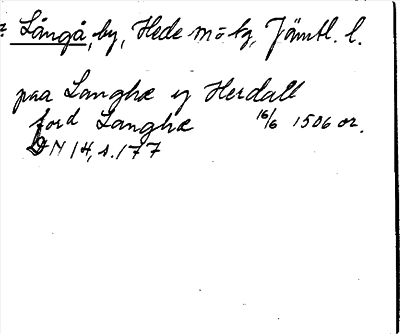 Långå, by, Hede sn o kg, Jämtl. l.
paa Langhæ y Herdall
ford Langhæ 16/6 1506 or.
DN 14, s. 177